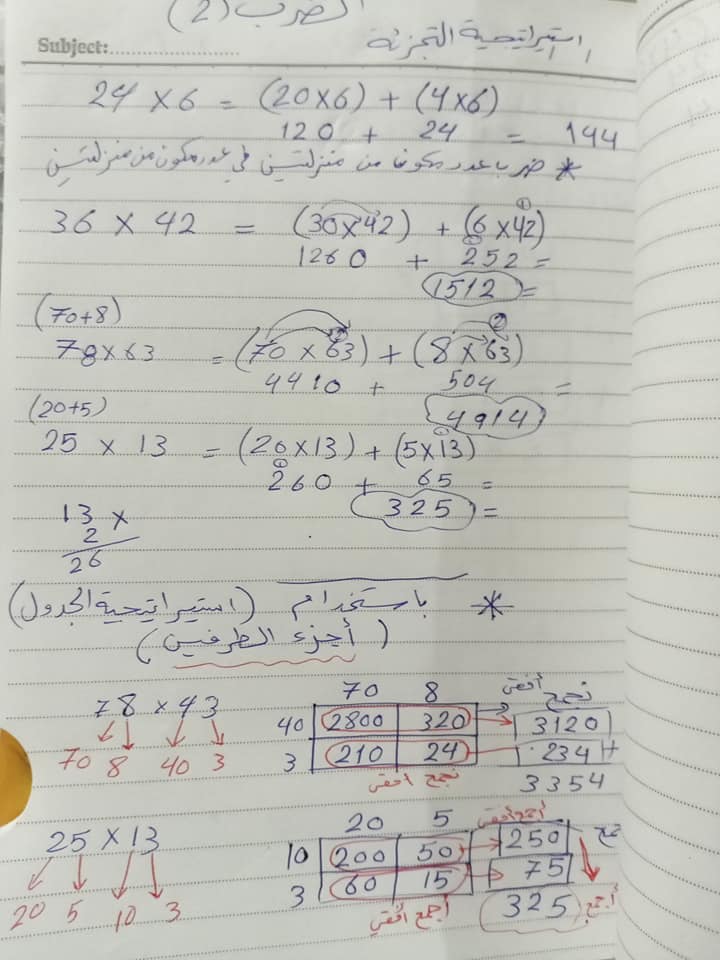 الضرب (2)
Subject:
استيراتيجية التجزئة
24 × 6 = (20×6) + (4×6)
120 + 24 = 144
* ضرب عدد مكون من منزلتين في عدد مكون من منزلتين
36 × 42 = (30×42) + (6×42)
1260 + 252 =
1512 =
(70+8)
78×63 = (70 × 63) + (8 × 63)
4410 + 504 =
4914
(20+5)
25 × 13 = (20×13) + (5×13)
260 + 65 =
325 =
13 ×
2
26
* باستخدام (استيراتيجية الجدول)
(أجزء الطرفين)
70 8 أفقي نجمع
78 × 43 40 2800 320 3120
70 8 40 3 3 210 24 234 +
نجمع افقي 3354
20 5 أجمع أفقي
25 × 13 10 200 50 250 نجمع
3 60 15 75
20 5 10 3 أجمع افقي 325 أجمع